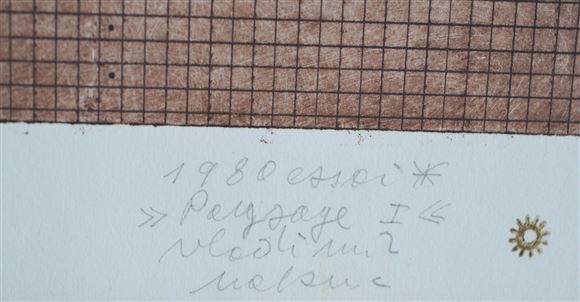 1980 essai *
»Paysage I«
vladimir
makuc